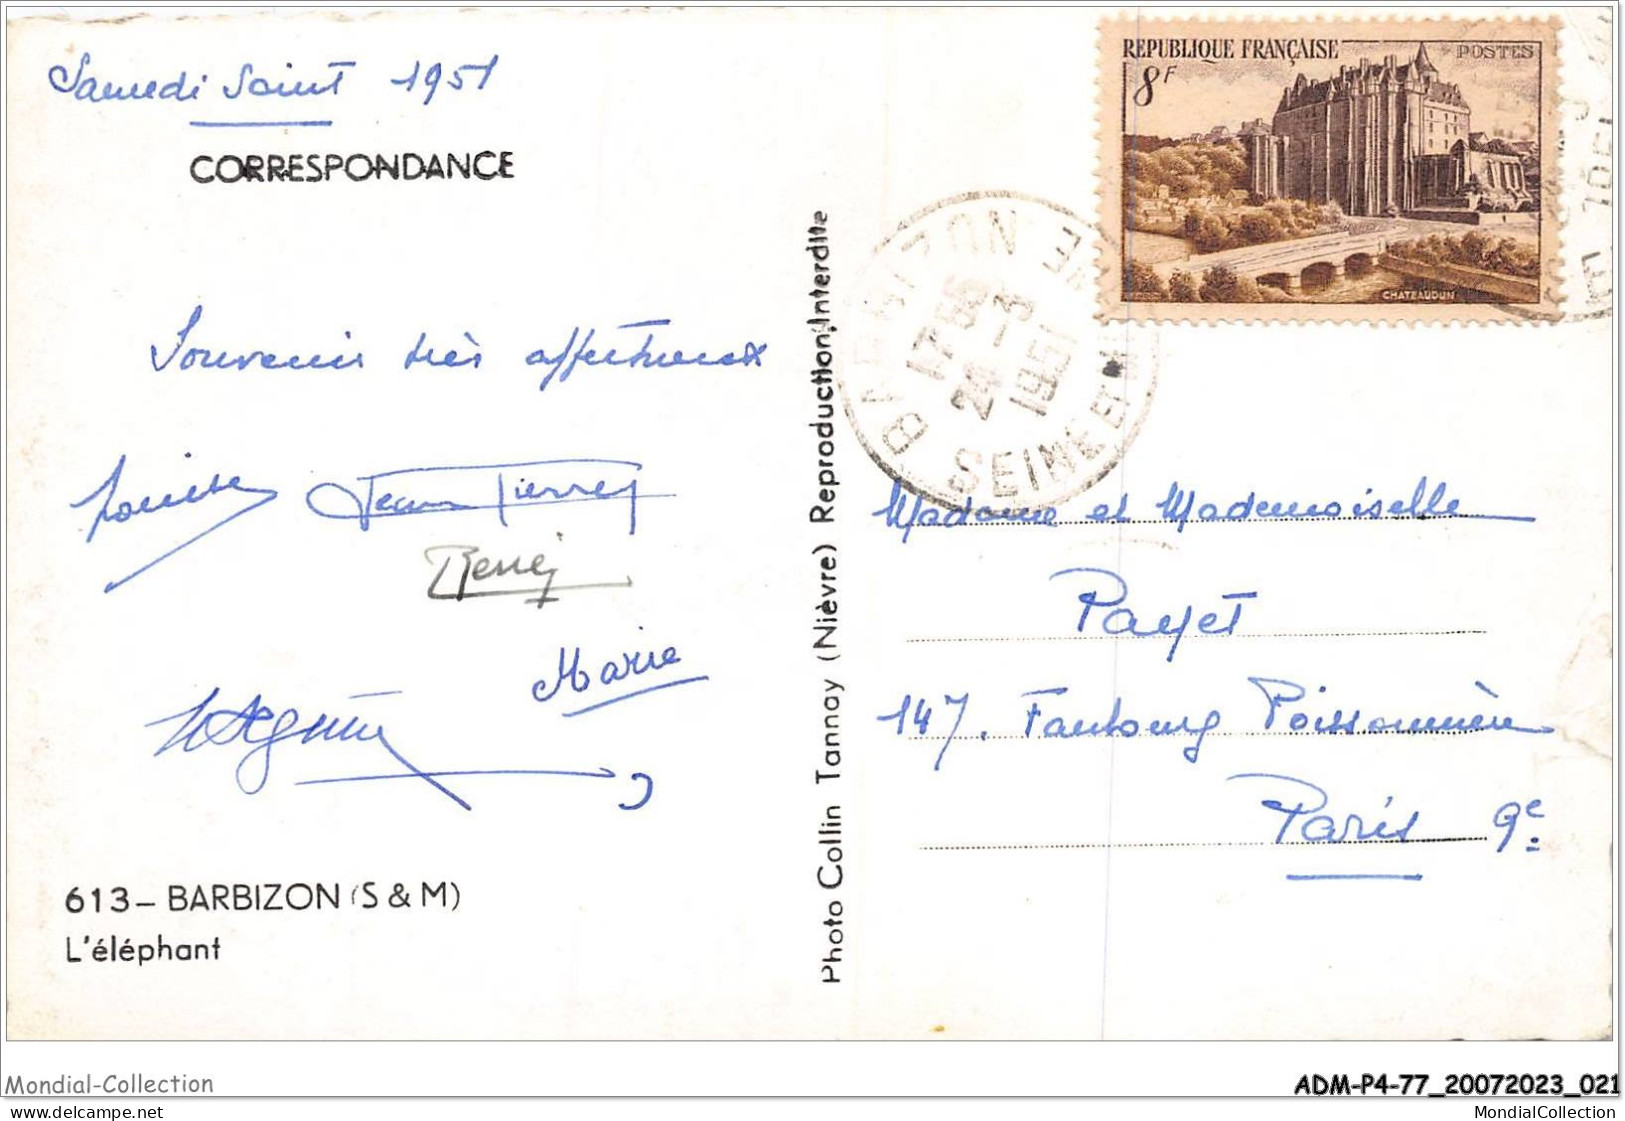 Samedi Saint 1951
CORRESPONDANCE
Souvenir très affectueux
Louise Jean Pierre
Marie
613 - BARBIZON (S & M)
L'éléphant
Photo Collin Tannay (Nièvre) Reproduction Interdite
REPUBLIQUE FRANÇAISE POSTES
8F
CHATEAUDUN
BARBIZON
24-3
1951
SEINE ET M
Madame et Mademoiselle
Payet
147. Faubourg Poissonnière
Paris 9e
Mondial-Collection
ADM-P4-77_20072023_021
delcampe.net
MondialCollection